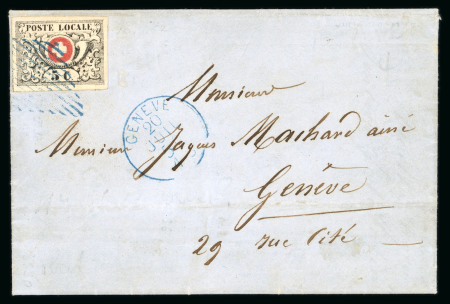 POSTE LOCALE
5 c
GENÈVE
20
JUIL
Monsieur
Monsieur Jaques Machard ainé
Genève
29 rue Cité